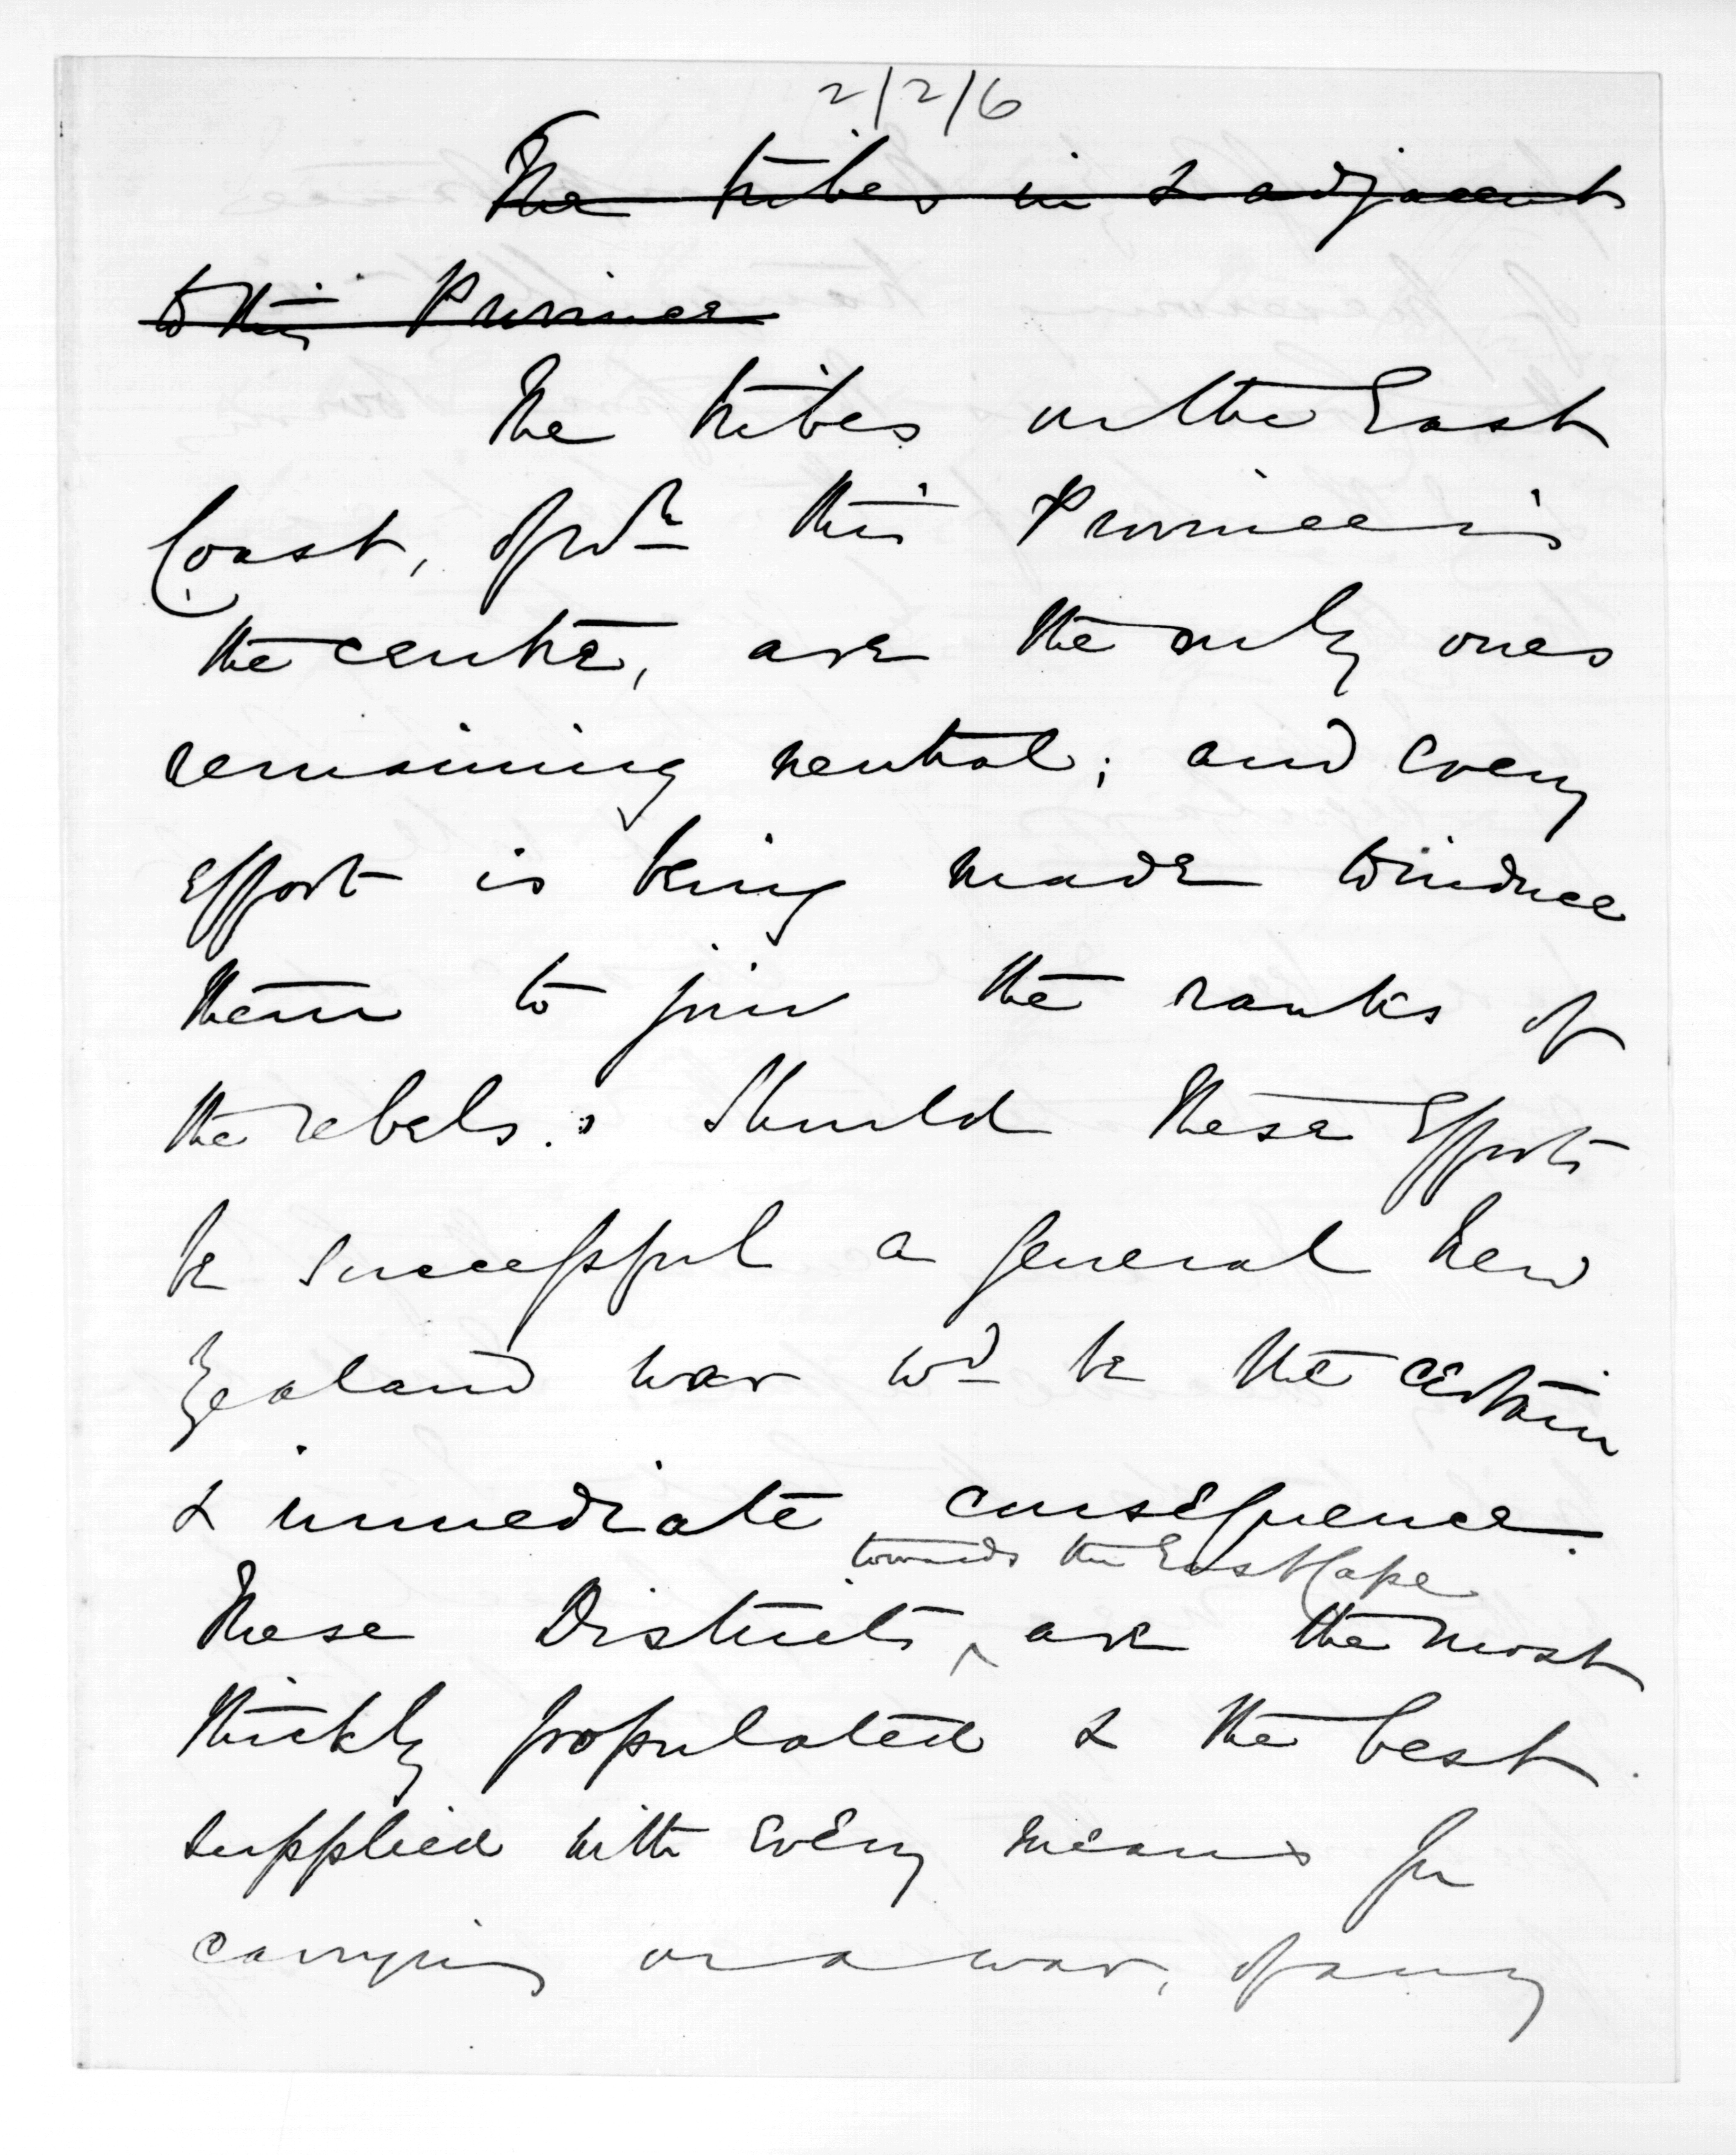 2/2/6
The tribes in & adjacent
to this Province
The tribes on the East
Coast, of wh this Province is
the centre, are the only ones
remaining neutral; and every
effort is being made to induce
them to join the ranks of
the rebels. Should these efforts
be successful a general New
Zealand war wd be the certain
& immediate consequence.
towards the East Cape
These Districts ^ are the most
thickly populated & the best
supplied with every means for
carrying on a war, of any